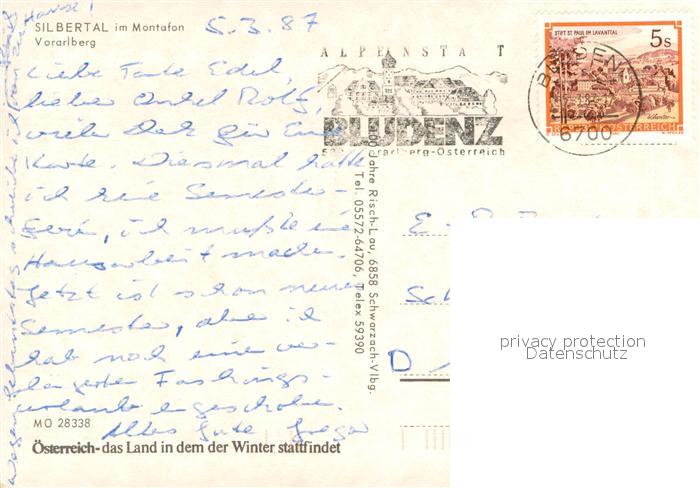 SILBERTAL im Montafon
Vorarlberg
5.3.87
Liebe Tante Edel,
lieber Onkel Rolf,
vielen Dank für Eure
Karte. Diesmal hatte
ich keine Semester-
ferien, ich mußte eine
Hausarbeit machen.
Jetzt ist schon neues
Semester, aber ich
hab noch einen ver-
längerten Faschings-
urlaub eingeschoben.
Alles Gute Gregor
MO 28338
Österreich - das Land in dem der Winter stattfindet
ALPENSTADT
BLUDENZ
Vorarlberg-Österreich
Jahre Risch-Lau, 6858 Schwarzach-Vlbg.
Tel. 05572-64706, Telex 59390
STIFT ST. PAUL IM LAVANTTAL
5s
REPUBLIK ÖSTERREICH
BLUDENZ
6700
D
privacy protection
Datenschutz